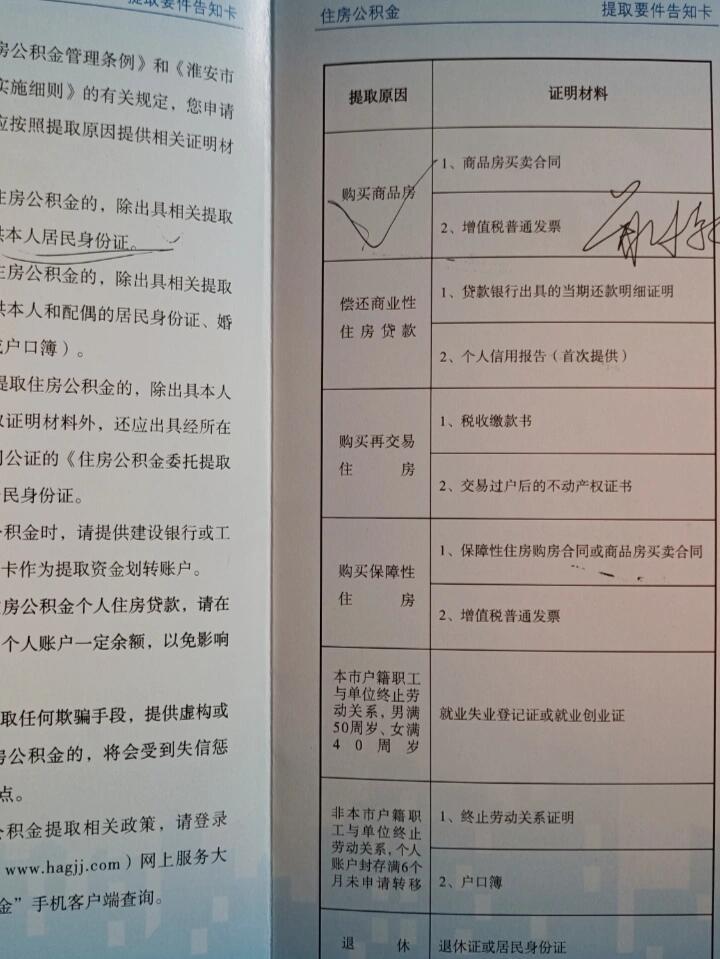 提取要件告知卡
房公积金管理条例》和《淮安市
实施细则》的有关规定，您申请
应按照提取原因提供相关证明材
住房公积金的，除出具相关提取
供本人居民身份证。
住房公积金的，除出具相关提取
供本人和配偶的居民身份证、婚
或户口簿）。
提取住房公积金的，除出具本人
取证明材料外，还应出具经所在
公证的《住房公积金委托提取
民身份证。
公积金时，请提供建设银行或工
卡作为提取资金划转账户。
住房公积金个人住房贷款，请在
个人账户一定余额，以免影响
取任何欺骗手段，提供虚构或
房公积金的，将会受到失信惩
点。
公积金提取相关政策，请登录
www.hagjj.com）网上服务大
金”手机客户端查询。
住房公积金
提取要件告知卡
提取原因
证明材料
购买商品房
1、商品房买卖合同
2、增值税普通发票
偿还商业性
住房贷款
1、贷款银行出具的当期还款明细证明
2、个人信用报告（首次提供）
购买再交易
住 房
1、税收缴款书
2、交易过户后的不动产权证书
购买保障性
住 房
1、保障性住房购房合同或商品房买卖合同
2、增值税普通发票
本市户籍职工
与单位终止劳
动关系，男满
50周岁、女满
40周岁
就业失业登记证或就业创业证
非本市户籍职
工与单位终止
劳动关系，个人
账户封存满6个
月未申请转移
1、终止劳动关系证明
2、户口簿
退 休
退休证或居民身份证